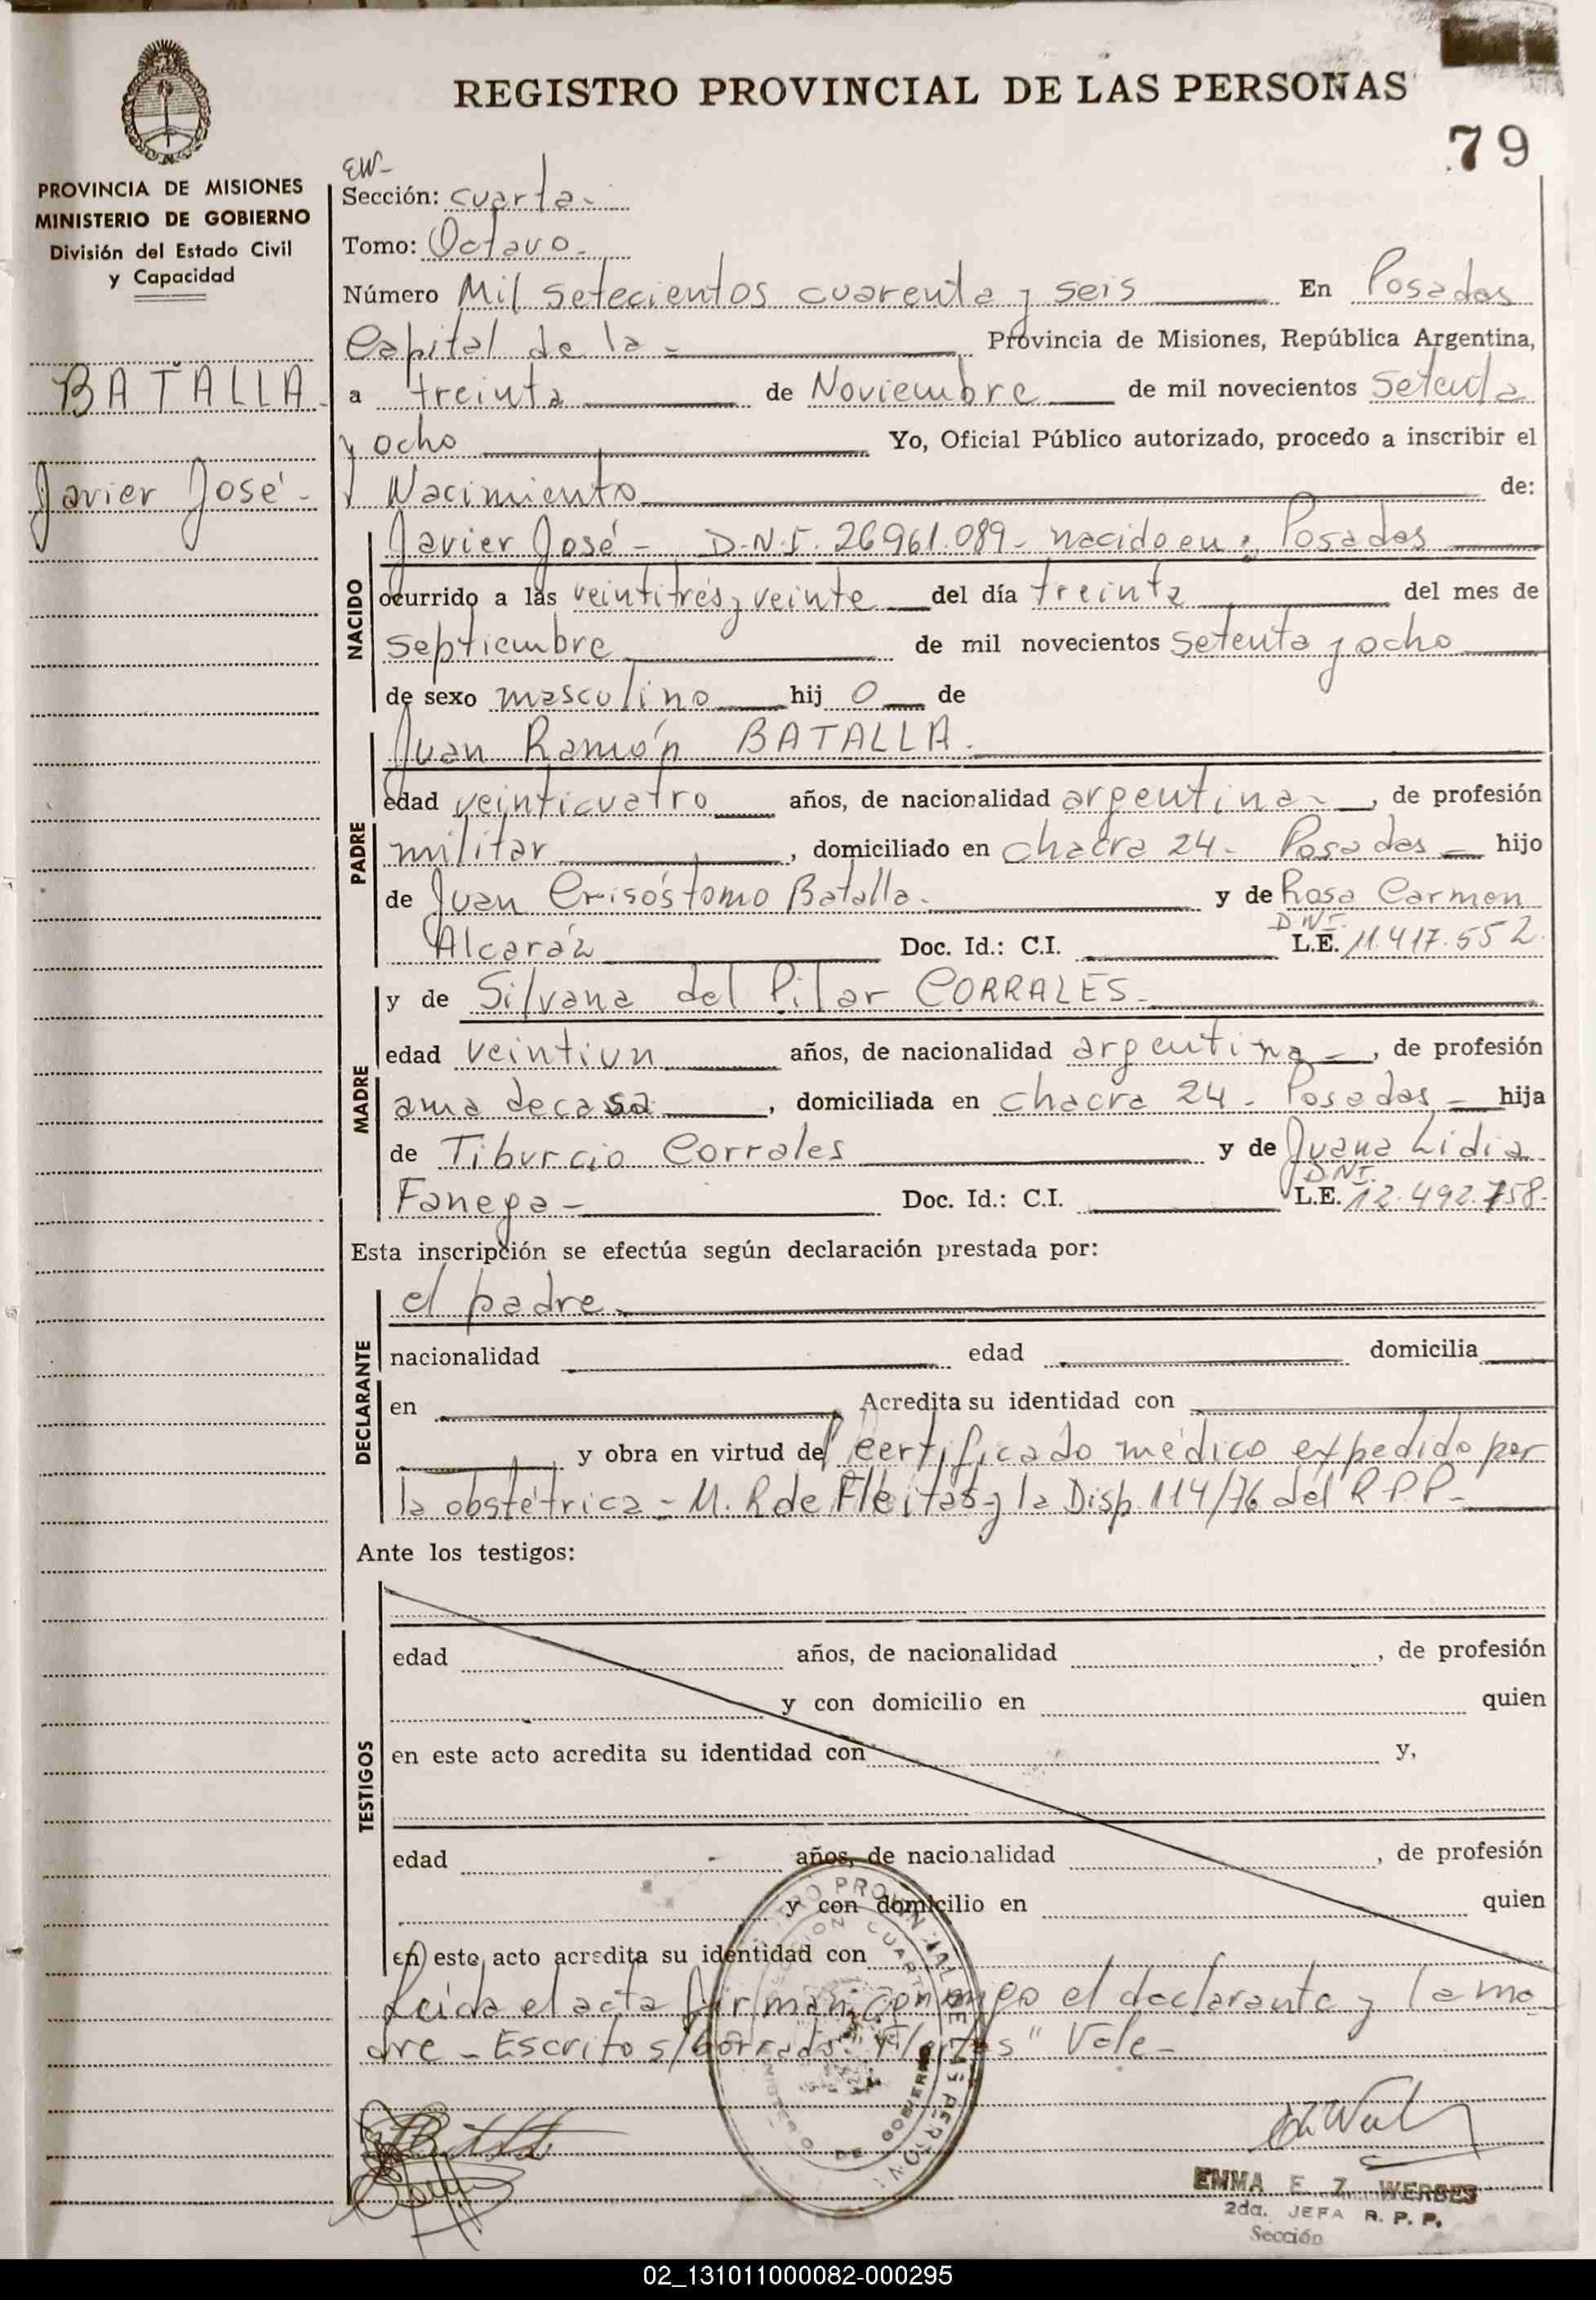 REGISTRO PROVINCIAL DE LAS PERSONAS
79
PROVINCIA DE MISIONES
MINISTERIO DE GOBIERNO
División del Estado Civil
y Capacidad
BATALLA
Javier José-
EW-
Sección: cuarta-
Tomo: Octavo-
Número Mil setecientos cuarenta y seis En Posadas
Capital de la - Provincia de Misiones, República Argentina,
a treinta de Noviembre de mil novecientos setenta
y ocho Yo, Oficial Público autorizado, procedo a inscribir el
Nacimiento de:
NACIDO
Javier José - D.N.I. 26961.089- nacido en: Posadas
ocurrido a las veintitres y veinte del día treinta del mes de
septiembre de mil novecientos setenta y ocho
de sexo masculino hij o de
PADRE
Juan Ramón BATALLA.
edad veinticuatro años, de nacionalidad argentina-, de profesión
militar, domiciliado en chacra 24- Posadas- hijo
de Juan Crisóstomo Batalla. y de Rosa Carmen
Alcaráz Doc. Id.: C.I. D.N.I. L.E. 11.417.552.
MADRE
y de Silvana del Pilar CORRALES-
edad veintiun años, de nacionalidad argentina-, de profesión
ama de casa, domiciliada en chacra 24- Posadas- hija
de Tiburcio Corrales y de Juana Lidia
Fanega- Doc. Id.: C.I. D.N.I. L.E. 12.492.758-
Esta inscripción se efectúa según declaración prestada por:
DECLARANTE
el padre-
nacionalidad edad domicilia
en Acredita su identidad con
y obra en virtud del certificado médico expedido por
la obstétrica- M. R de Fleitas y la Disp. 114/76 del R P P-
Ante los testigos:
TESTIGOS
edad años, de nacionalidad , de profesión
y con domicilio en quien
en este acto acredita su identidad con y,
edad años, de nacionalidad , de profesión
y con domicilio en quien
en este acto acredita su identidad con
Leida el acta firman conmigo el declarante y la ma
dre - Escrito s/borrado: "Fleitas" Vale-
SECCION CUARTA
MINISTERIO DE GOBIERNO
EMMA E. Z. WERBES
2da. JEFA R. P. P.
Sección
02_131011000082-000295